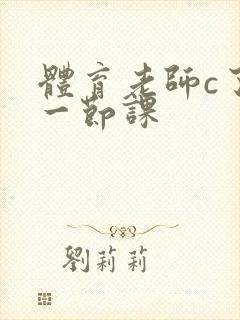 體育老師c了
一節課
劉莉莉